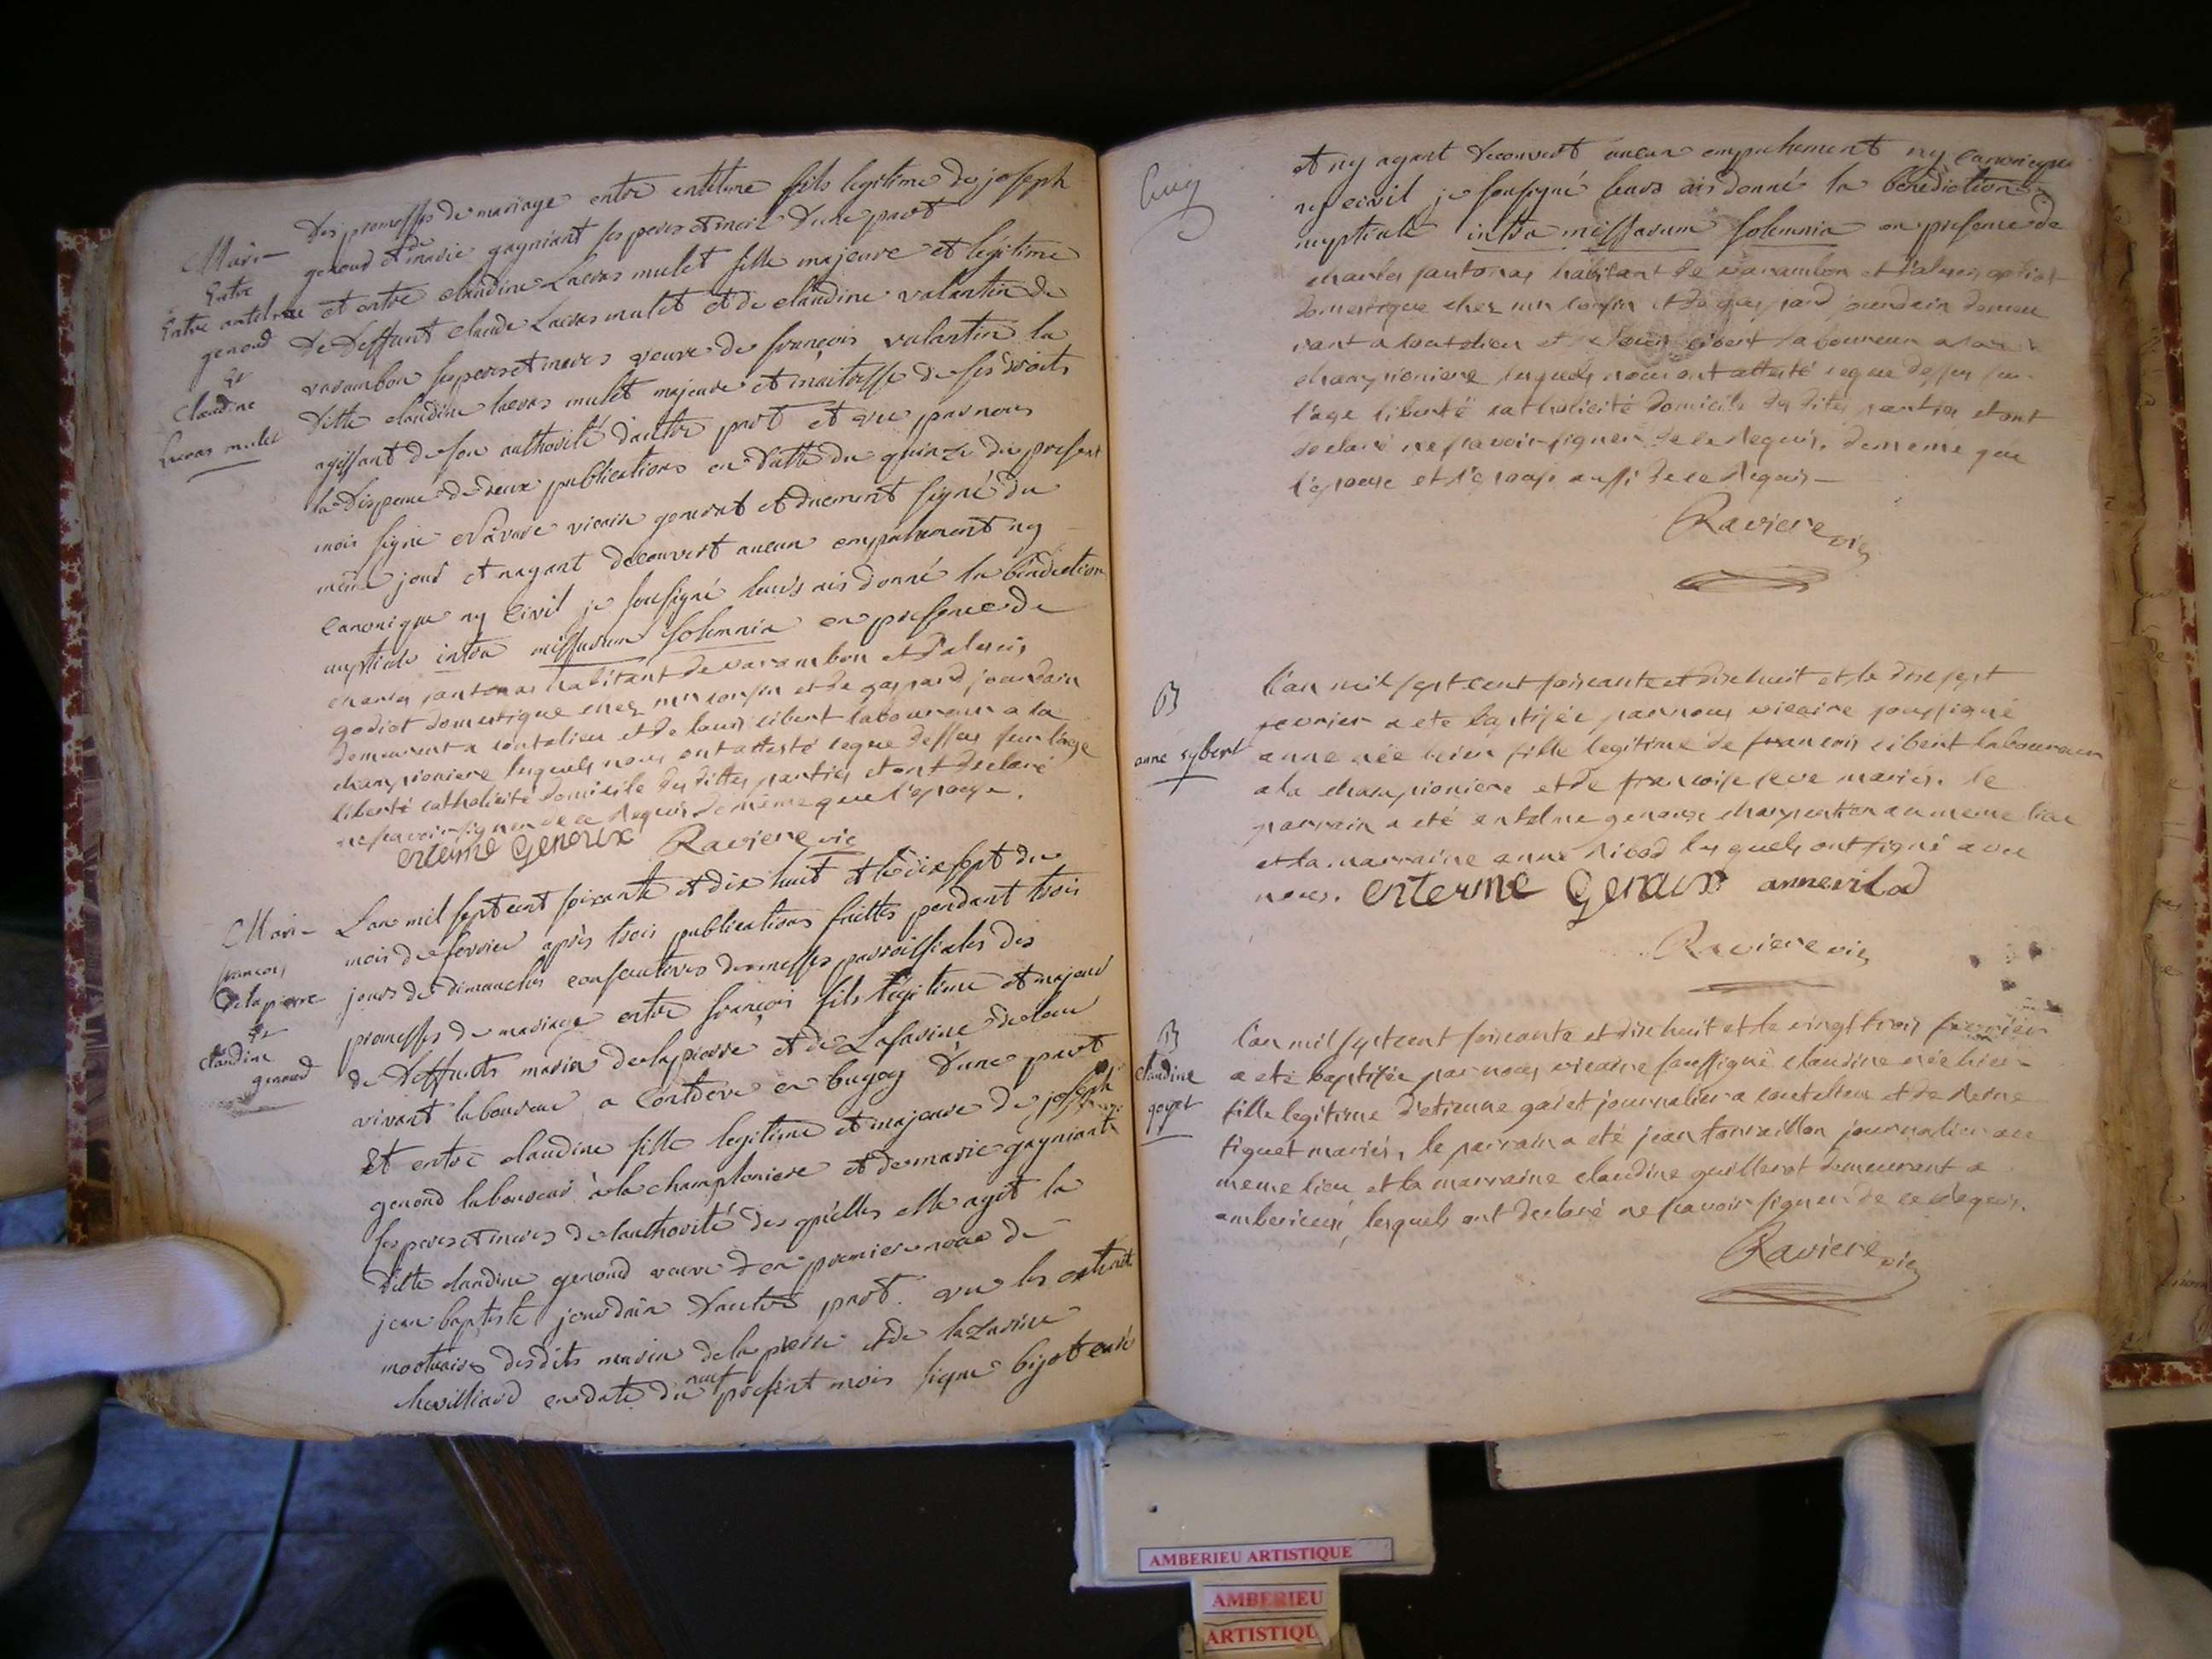 Des promesses de mariage entre entelme fils legitime de joseph
genoud et de marie gagniant ses peres et mere d'une part
et entre claudine Lacras mulet fille majeure et legitime
de deffunt claude Lacras mulet et de claudine valantin de
varambon ses peres et meres veuve de françois valantin la
ditte claudine lacras mulet majeure et maitresse de ses droits
agissant de son authorité d'autre part et vu par nous
la dispence de deux publications en datte du quinze du present
mois signé vicaire general et duement signé du
même jour et nayant decouvert aucun empechement ny
canonique ny civil je sousigné leurs ais donné la bénédiction
nuptiale intra missarum solemnia en presence de
charles jantonas habitant de varambon et d'alexis
godiot domestique chez mr confin et de gaspard jourdain
demeurant a coutelieu et de louis cibert laboureur a la
championiere lesquels nous ont attesté ceque dessus sur l'age
liberté catholicité domicile des dittes parties et ont declaré
ne scavoir signer de ce requis de même que l'epouse.
enteime Genoux Raviere vic
Mari-
Entre
Entre antelme
genoud
&
Claudine
Lacras mulet
Mari-
francois
Delapierre
&
claudine
genoud
L'an mil sept cent soixante et dix huit et le dix sept du
mois de fevrier après trois publications faittes pendant trois
jours de dimanches consecutives des messes paroissiales des
promesses de mariage entre françois fils légitime et majeur
de deffunts marin delapierre et de Lazarine
vivant laboureur a en bugey d'une part
Et entre claudine fille legitime et majeure de joseph
genoud laboureur à la championiere et de marie gagniant
ses peres et meres de l'authorité des quelles elle agit la
ditte claudine genoud veuve d'en premiere noce de
jean baptiste jourdain d'autre part. vu les extrait
mortuaires desdits marin delapierre et de lazarine
chevilliard en date du neuf présent mois signé bizot curé
et ny ayant decouvert aucun empechement ny canonique
ny civil je sousigné leurs ais donné la bénédiction
nuptiale intra missarum solemnia en presence de
charles jantonas habitant de varambon et d'alexis godiot
domestique chez mr confin et de gaspard jourdain demeu
rant a coutelieu et de louis cibert laboureur a la
championiere lesquels nous ont attesté ceque dessus sur
l'age liberté catholicité domicile des dites parties et ont
declaré ne scavoir signer de ce requis, de meme que
l'epouse et l'epoux aussi de ce requis—
Raviere vic
B
anne sybert
l'an mil sept cent soixante et dix huit et le dix sept
fevrier a eté baptisée par nous vicaire soussigné
anne née hier fille legitime de francois cibert laboureur
a la championiere et de francoise seve mariés. le
parrain a eté entelme genoux charpentier au meme lieu
et la marraine anne rivod lesquels ont signé avec
nous. enterme Genoux
Raviere vic
B
claudine
goyet
l'an mil sept cent soixante et dix huit et le vingt trois fevrier
a eté baptisée par nous vicaire soussigné claudine née hier
fille legitime d'etienne goiet journalier a coutelieu et de
tiquet mariés, le parrain a eté jean tonraillon journalier au
meme lieu et la marraine claudine guillerot demeurant a
amberieux, lesquels ont declaré ne scavoir signer de ce requis.
Raviere vic
AMBERIEU ARTISTIQUE
AMBERIEU
ARTISTIQU